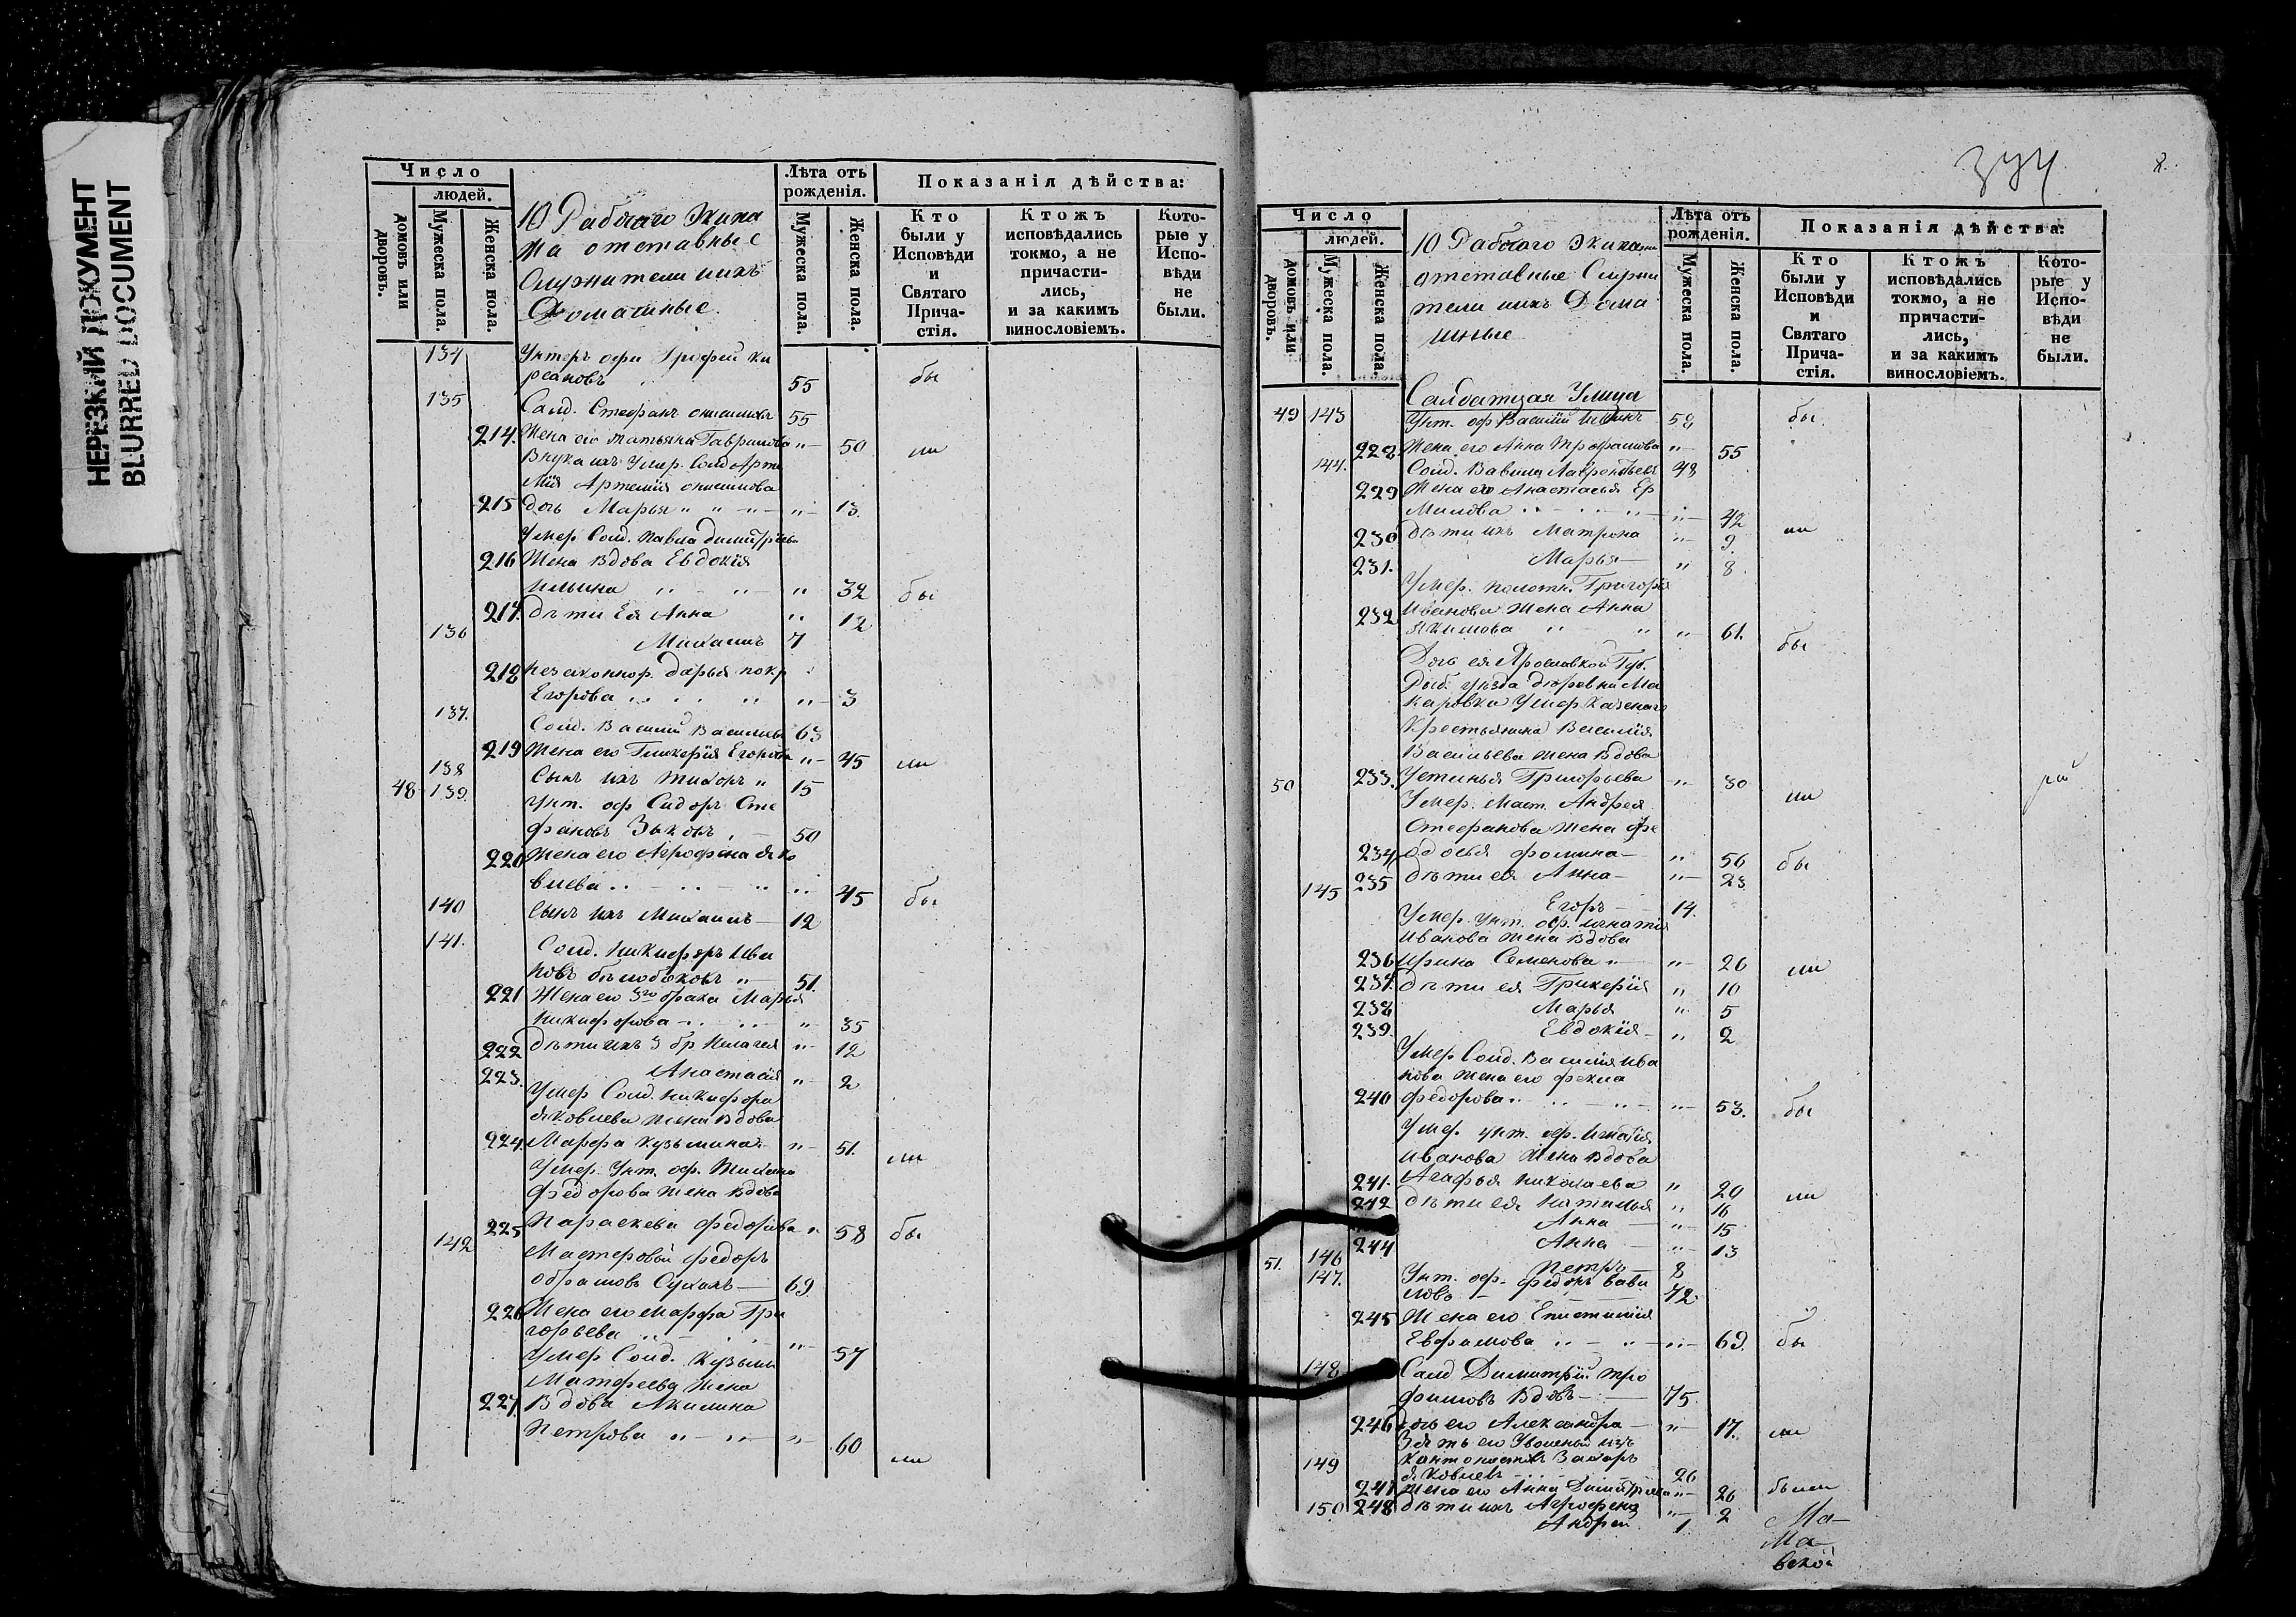 НЕРЕЗКИЙ ДОКУМЕНТ
BLURRED DOCUMENT
Число
людей.
домовъ или дворовъ.
Мужеска пола.
Женска пола.
10 Рабочаго Экипа
жа отставные
Служители ихъ
Домашные.
Лѣта отъ рожденія.
Мужеска пола.
Женска пола.
Показанія дѣйства:
Кто были у Исповѣди и Святаго Прича-стія.
Ктожъ исповѣдались токмо, а не причасти-лись, и за какимъ винословіемъ.
Кото-рые у Испо-вѣди не были.
134 Унтеръ офи
55 бы
135 Солд. Стефанъ 55
214. Жена его Татьяна Гаврилова „ 50 ли
Внука ихъ Умер. Солд Арте
мія Артемія
215 дочь Марья „ „ „ 13.
Умер Солд. Павла Димитріева
216 Жена Вдова Евдокія
Ильина „ „ „ 32 бы
217. дѣти Ея Анна „ 12
136 Михаилъ 7
218 незаконнор. Дарья
Егорова „ „ „ 3
137. Солд. Василий Васильевъ 63
219 Жена его Гликерія Егорова „ 45 ли
138 Сынъ ихъ Тихонъ „ 15
48 139. Унт. оф Сидоръ Сте
фановъ Зыковъ 50
220 Жена его Агрофена Яко
влева „ „ „ 45 бы
140 Сынъ ихъ Михаилъ 12
141. Солд. Никифоръ Ива
новъ „ 51.
221 Жена его 3го брака Марья
Никифорова „ 35
222 дѣти ихъ 3 бр Пелагея „ 12
223. Анастасія „ 2
Умер Солд. Никифора
Яковлева жена Вдова
224. Марфа Кузьмина „ 51. ли
Умер. Унт. оф. Тихона
Федорова жена вдова
225 Параскева Федорова „ 58 бы
142 Мастеровой Федоръ
69.
226 Жена его Марфа Гри
горьева „ 57
Умер Солд. Кузьмы
Матфеева жена
227. Вдова Акилина
Петрова „ „ „ 60 ли
374
8.
Число
людей.
домовъ или дворовъ.
Мужеска пола.
Женска пола.
10 Рабочаго Экипажа
отставные Служи
тели ихъ Дома
шные
Лѣта отъ рожденія.
Мужеска пола.
Женска пола.
Показанія дѣйства:
Кто были у Исповѣди и Святаго Прича-стія.
Ктожъ исповѣдались токмо, а не причасти-лись, и за какимъ винословіемъ.
Кото-рые у Испо-вѣди не были.
Салдатцая Улица
49 143 Унт. оф Василий 58 бы
228 Жена его Анна Трофимова „ 55
144. Солд. Вавила Лаврентьевъ 48
229 Жена его Анастасья Ер
милова „ 42
230 дѣти ихъ Матрона „ 9. ли
231. Марья „ 8.
Умер. Плотн. Григорія
232 Иванова жена Анна
Якимова „ „ „ 61. бы
Дочь ея Ярославской Губ.
Рыб. уѣзда деревни Ма
каровки Умер. Казенаго
Крестьянина Василия
Васильева жена Вдова
50 233. Устинья Григорьева „ 30 ли
Умер. Маст. Андрея
Стефанова жена Фе
234 одосья Фомина „ 56 бы
235 дѣти ея Анна „ 23
145 Егоръ 14.
Умер. Унт. оф. Игнатія
Иванова жена Вдова
236 Ирина Семенова „ „ 26 ли
237. дѣти ея Гликерія „ 10
238 Марья „ 5
239. Евдокія „ 2
Умер Солд. Василия Ива
нова жена его Фекла
240 Федорова „ „ „ 53. бы
Умер. унт. оф. Игнатія
Иванова жена Вдова
241. Агафья Николаева „ 20 ли
242 дѣти ея Наталья „ 16
Анна „ 15
244 Анна „ 13
146 Петръ 8
51. 147. Унт. оф. Федоръ Вави
ловъ 72
245 Жена его Епистимия
Евфимова „ „ „ 69. бы
148 Салд Димитрій Тро
фимовъ Вдовъ 75.
246 дочь его Александра „ 17. ли
Зять его Уволеный изъ
149 кантонистовъ Захаръ
Яковлевъ 26
247 Жена его Анна Димитріева „ 26 были
248 дѣти ихъ Агрофена „ 2
150 Андрей 1.
Ма
Ма
вской